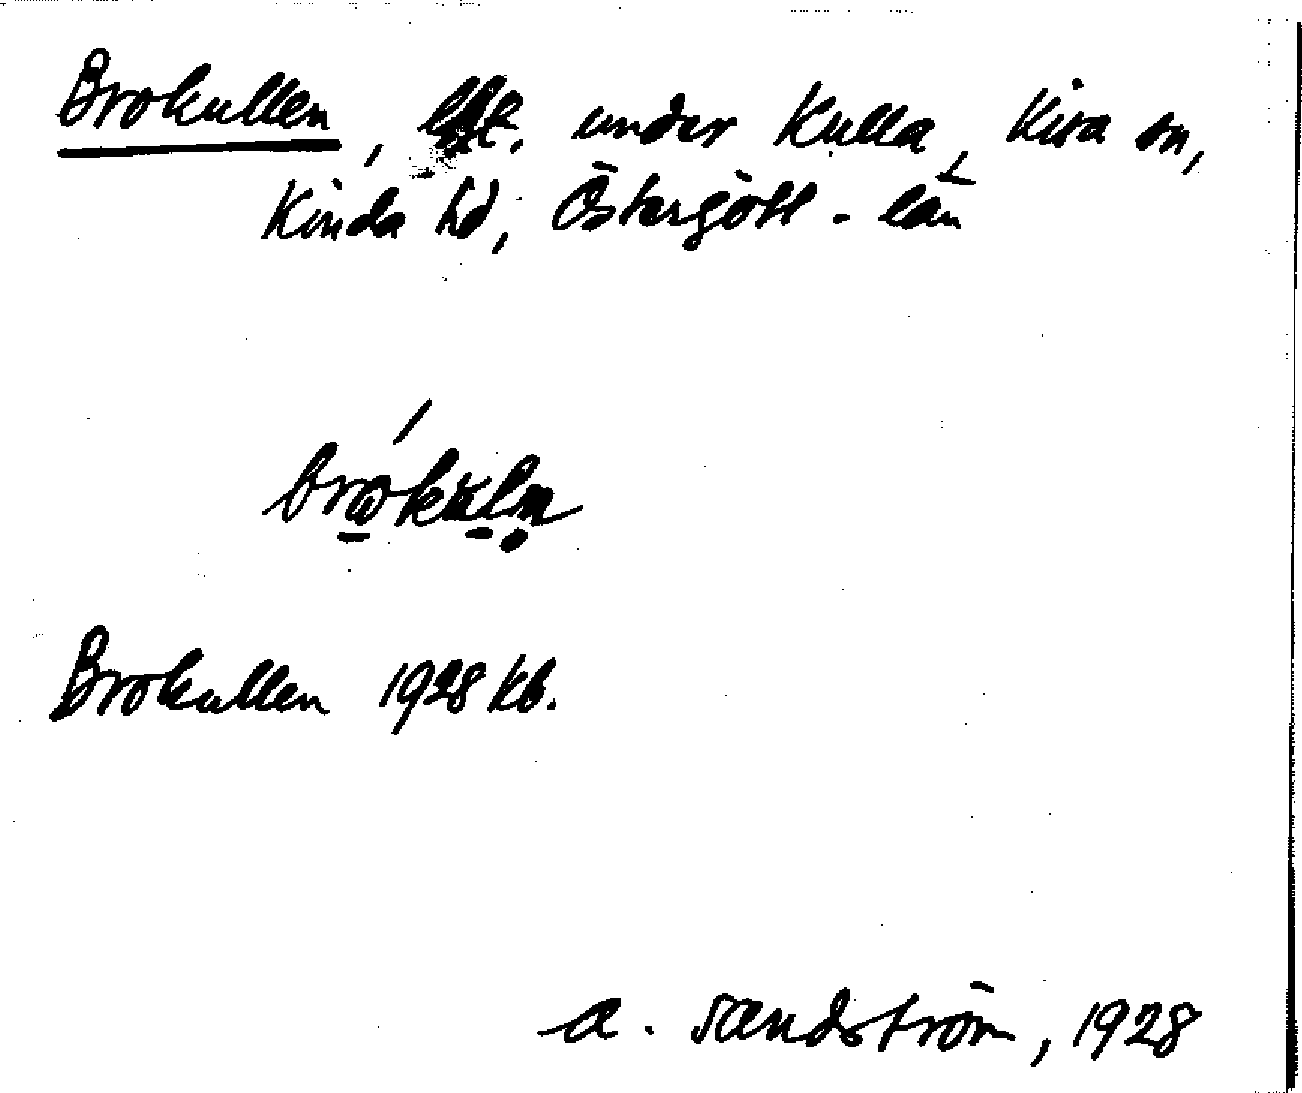 Brokullen, lht. under Kulla, Kisa sn,
Kinda hd, Östergötl. län
Brokullen 1928 kb.
A. Sandström, 1928